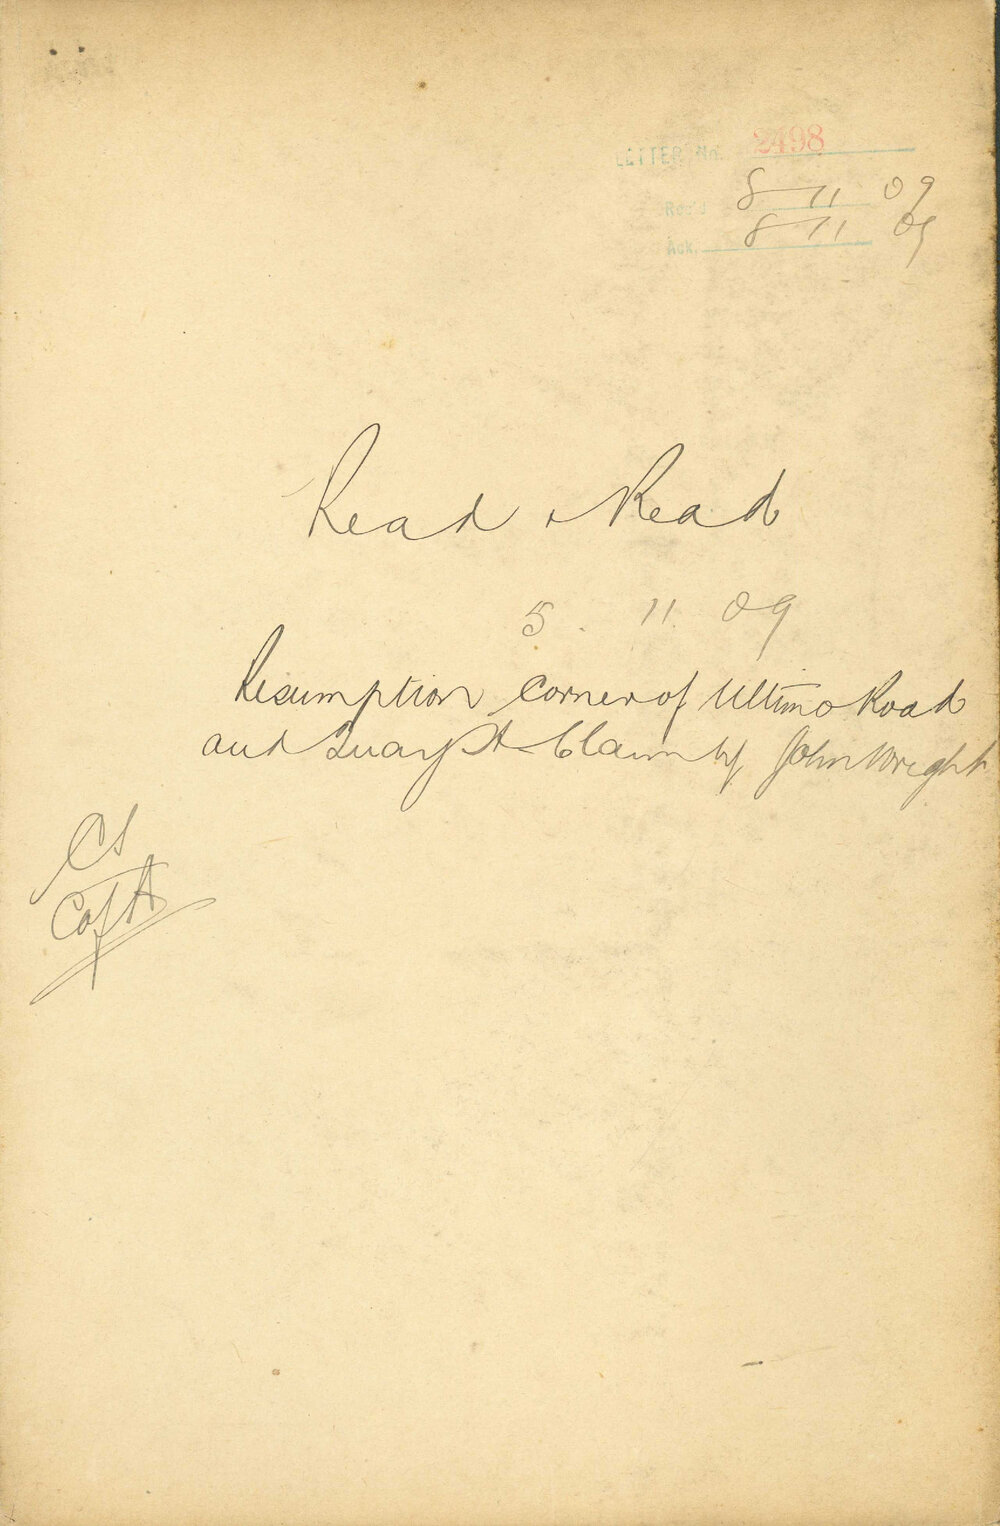 LETTER No. 2498
Rec'd 8-11 09
Ack. 8-11 09
Read & Read
5. 11. 09
Resumption corner of Ultimo Road
and Quay St Claim by John Wright
CS
C of A